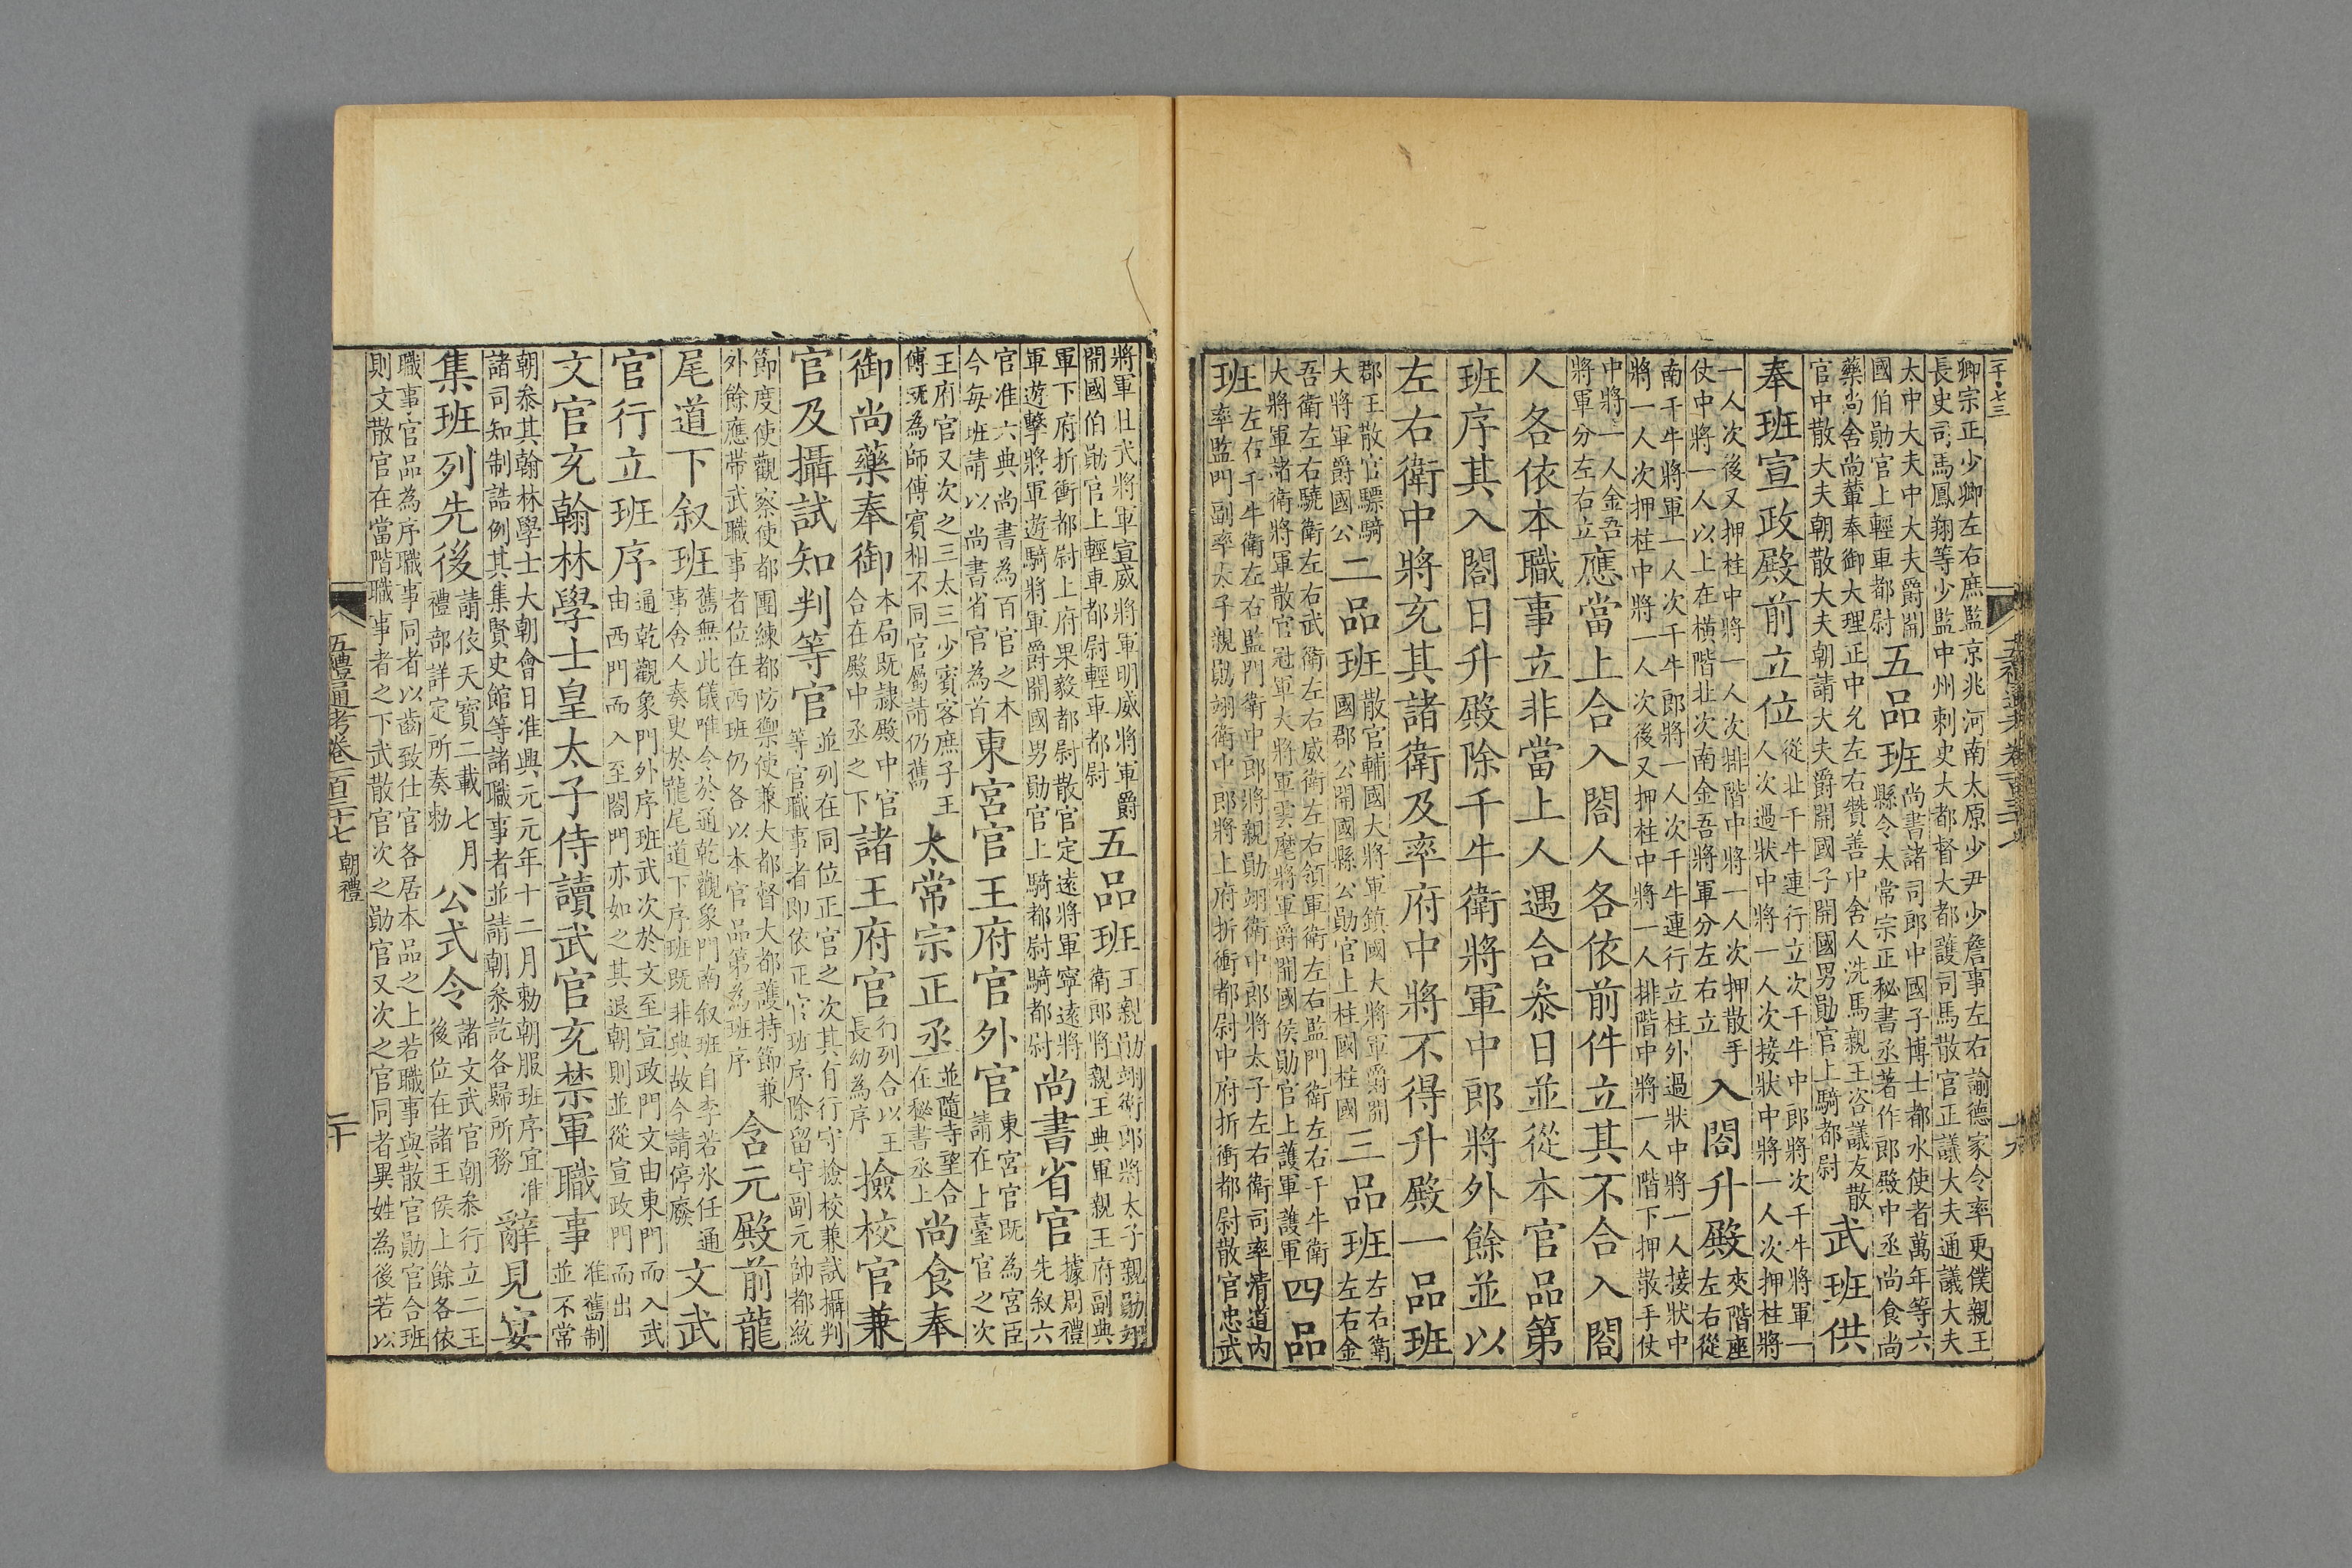 二千七三
五禮通考卷一百三十七
十九
卿宗正少卿左右庶監京兆河南太原少尹少詹事左右諭德家令率更僕親王
長史司馬鳳翔等少監中州刺史大都督大都護司馬散官正議大夫通議大夫
太中大夫中大夫爵開
國伯勛官上輕車都尉
五品班
尚書諸司郎中國子博士都水使者萬年等六
縣令太常宗正秘書丞著作郎殿中丞尚食尚
藥尚舍尚輦奉御大理正中允左右贊善中舍人洗馬親王咨議友散
官中散大夫朝散大夫朝請大夫爵開國子開國男勛官上騎都尉
武班供
奉班宣政殿前立位
從北千牛連行立次千牛中郎將次千牛將軍一
人次過狀中將一人次接狀中將一人次押柱將
一人次後又押柱中將一人次排階中將一人次押散手
使中將一人以上在橫階北次南金吾將軍分左右立
入閤升殿
夾階座
左右從
南千牛將軍一人次千牛郎將一人次千牛連行立柱外過狀中將一人接狀中
將一人次押柱中將一人次後又押柱中將一人排階中將一人階下押散手仗
中將一人金吾
將軍分左右立
應當上合入閤人各依前件立其不合入閤
人各依本職事立非當上人遇合叅日並從本官品第
班序其入閤日升殿除千牛衛將軍中郎將外餘並以
左右衛中將充其諸衛及率府中將不得升殿一品班
郡王散官驃騎
大將軍爵國公
二品班
散官輔國大將軍鎮國大將軍爵開
國郡公開國縣公勛官上柱國柱國
三品班
左右衛
左右金
吾衛左右驍衛左右武衛左右威衛左右領軍衛左右監門衛左右千牛衛
大將軍諸衛將軍散官冠軍大將軍雲麾將軍爵開國侯勛官上護軍護軍
四品
班
左右千牛衛左右監門衛中郎將親勛翊衛中郎將太子左右衛司率清道內
率監門副率太子親勛翊衛中郎將上府折衝都尉中府折衝都尉散官忠武
將軍壯武將軍宣威將軍明威將軍爵
開國伯勛官上輕車都尉輕車都尉
五品班
王親勛翊衛郎將太子親勛翊
衛郎將親王典軍親王府副典
軍下府折衝都尉上府果毅都尉散官定遠將軍寧遠將
軍遊擊將軍遊騎將軍爵開國男勛官上騎都尉騎都尉
尚書省官
據周禮
先叙六
官准六典尚書為百官之本
今每班請以尚書省官為首
東宮官王府官外官
東宮官既為宮臣
請在上臺官之次
王府官又次之三太三少賓客庶子王
傅既為師傅賓相不同官屬請仍舊
太常宗正丞
並隨寺望合
在秘書丞上
尚食奉
御尚藥奉御
本局既隷殿中官
合在殿中丞之下
諸王府官
行列合以王
長幼為序
撿校官兼
官及攝試知判等官
並列在同位正官之次其有行守撿校兼試攝判
等官職事者即依正官班序除留守副元帥都統
節度使觀察使都團練都防禦使兼大都督大都護持節兼
外餘應帶武職事者位在西班仍各以本官品第為班序
含元殿前龍
尾道下叙班
舊無此儀唯令於通乾觀象門南叙班自李若水任通
事舍人奏更於龍尾道下序班既非典故今請停廢
文武
官行立班序
通乾觀象門外序班武次於文至宣政門文由東門而入武
由西門而入至閤門亦如之其退朝則並從宣政門而出
文官充翰林學士皇太子侍讀武官充禁軍職事
准舊制
並不常
朝叅其翰林學士大朝會日准興元元年十二月勅朝服班序宜准
諸司知制誥例其集賢史館等諸職事者並請朝叅訖各歸所務
辭見宴
集班列先後
請依天寶二載七月
禮部詳定所奏勅
公式令
諸文武官朝叅行立二王
後位在諸王侯上餘各依
職事官品為序職事同者以齒致仕官各居本品之上若職事與散官勛官合班
則文散官在當階職事者之下武散官次之勛官又次之官同者異姓為後若以
五禮通考卷一百三十七
朝禮
二十